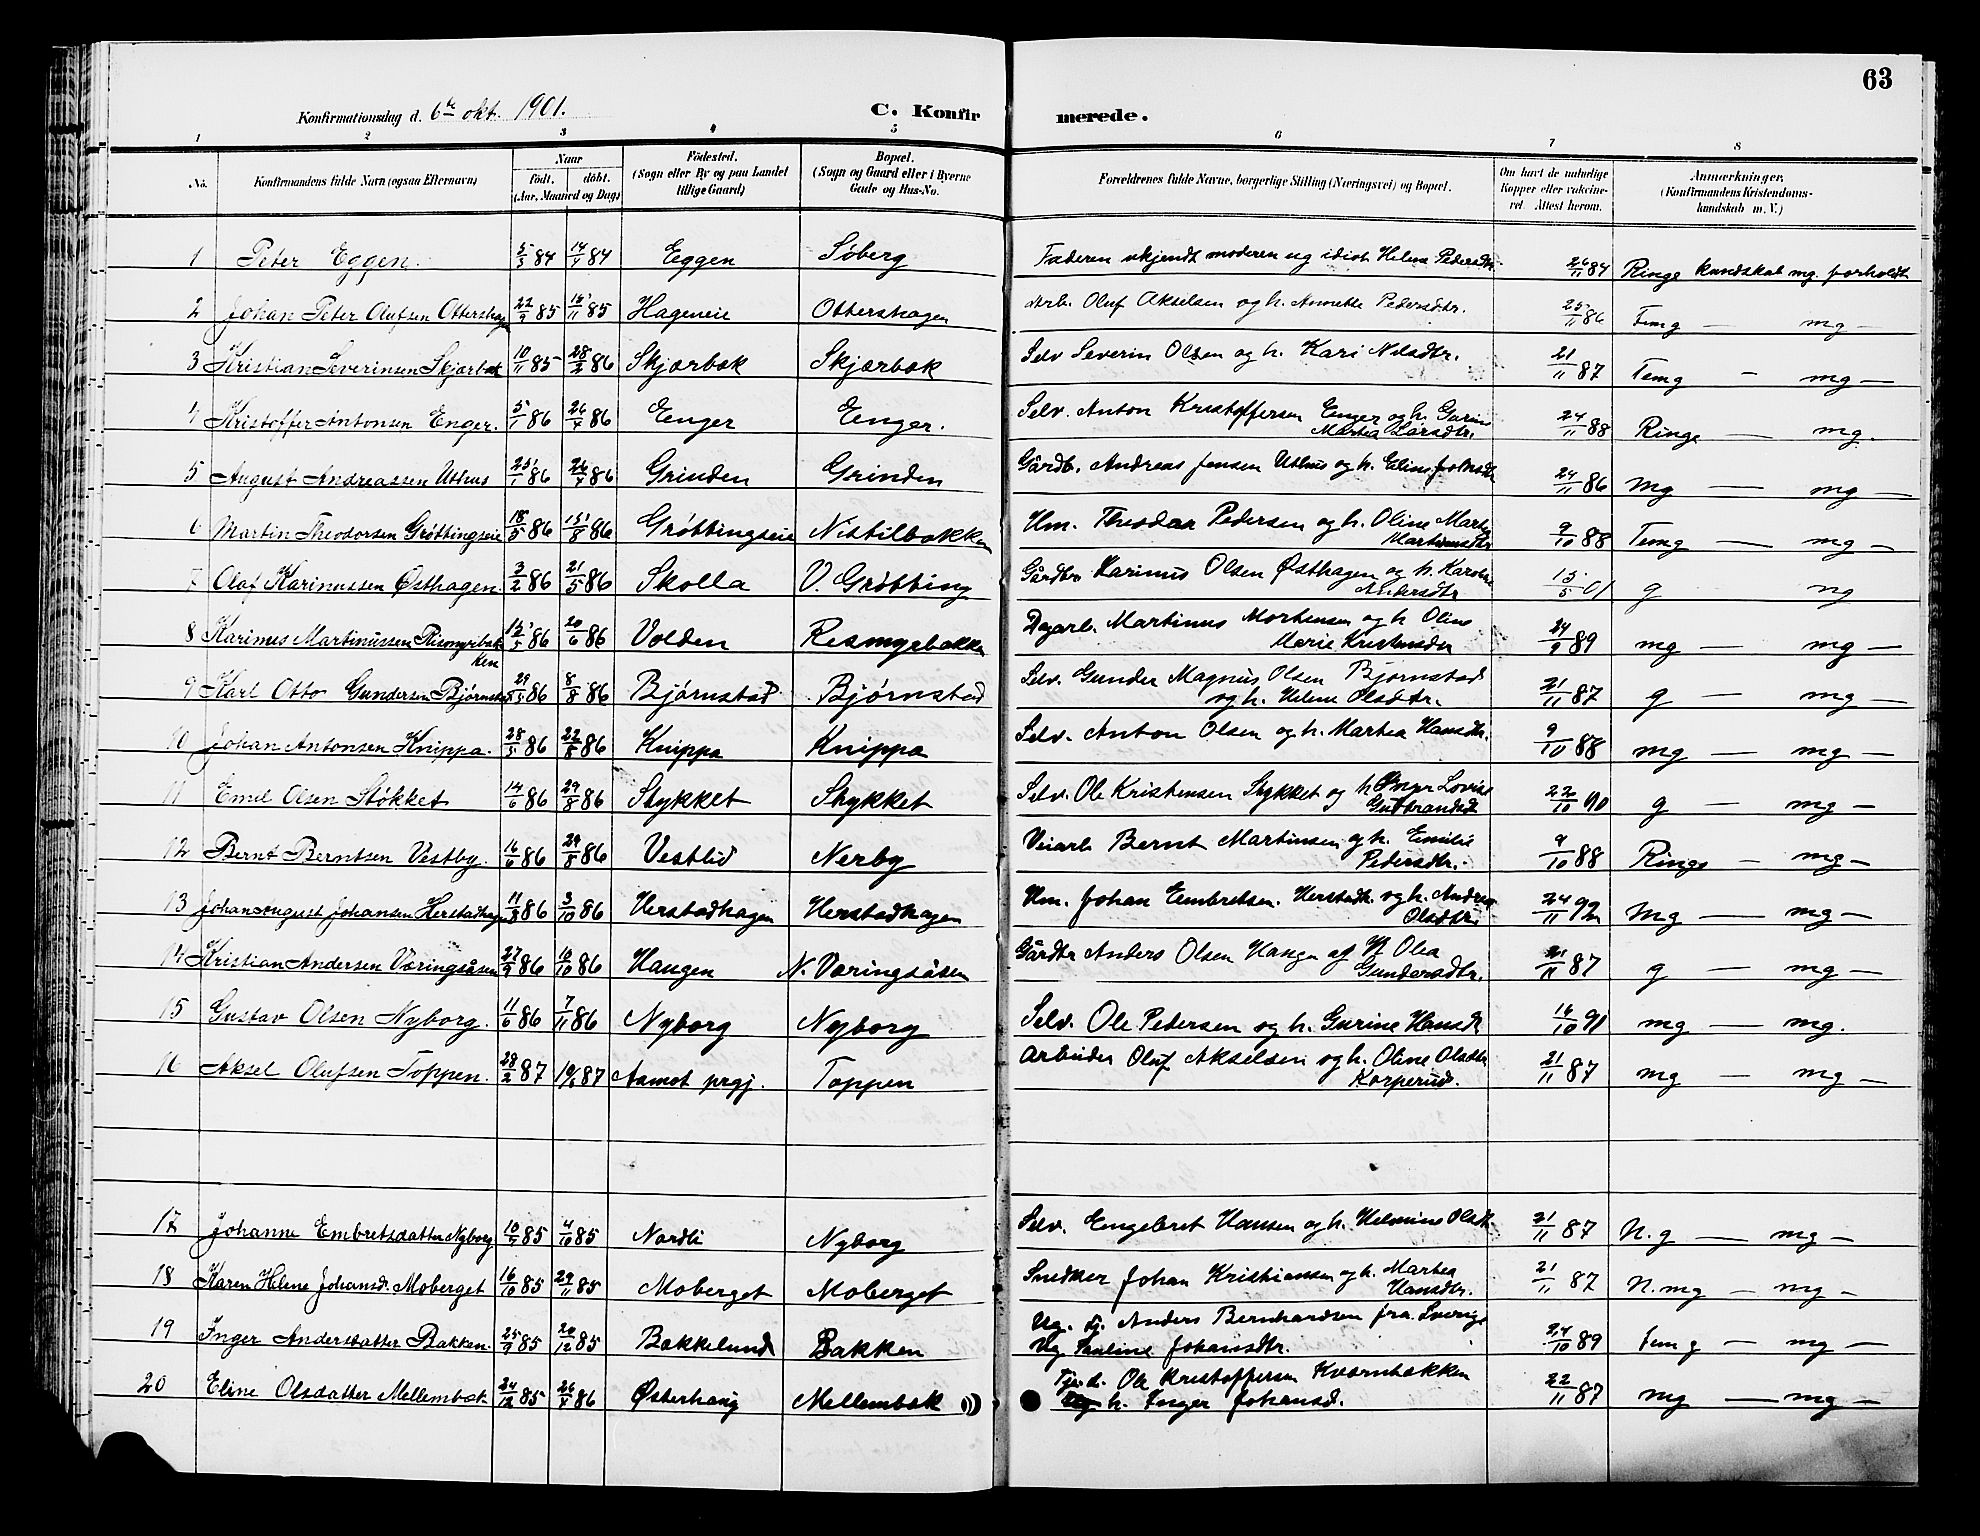 63
Konfirmationsdag d. 6te okt. 1901. C. Konfirmerede.
1 2 3 4 5 6 7 8
No. Konfirmandens fulde Navn (ogsaa Efternavn) Naar födt. döbt. (Aar, Maaned og Dag) Födested. (Sogn eller By og paa Landet tillige Gaard) Bopæl. (Sogn og Gaard eller i Byerne Gade og Hus-No. Forældrenes fulde Navne, borgerlige Stilling (Næringsvei) og Bopæl. Om havt de naturlige Kopper eller vaccineret. Attest herom. Anmærkninger. (Konfirmandens Kristendomskundskab m. V.)
1 Peter Eggen. 5/3 84 14/4 84 Eggen Söberg Faderen ukjendt moderen ug idiot Helene Pedersdtr. 26/11 84 Ringe kundskab mg. forholdt
2 Johan Peter Olufsen Ottershagen 22/9 85 15/11 85 Hageneie Ottershagen Arb. Oluf Akselsen og h. Annette Pedersdtr. 25/11 86 Temg — mg —
3 Kristian Severinsen Skjærbæk 10/11 85 28/2 86 Skjærbæk Skjærbæk Selv Severin Olsen og h. Kari Nilsdtr. 21/11 87 Temg — mg —
4 Kristoffer Antonsen Enger. 5/1 86 26/4 86 Enger Enger. Selv. Anton Kristoffersen Enger og h. Gurine Martea Larsdtr. 24/11 88 Ringe — mg.
5 August Andreassen Uthus 25/1 86 26/4 86 Grinden Grinden Gårdb. Andreas Jensen Uthus og h. Eline Johnsdtr 24/11 86 Mg — mg —
6 Martin Theodorsen Gröttingseie 18/5 86 15/8 86 Gröttingseie Nistilbakken Hm. Theodor Pedersen og h. Oline Marte Martinusdtr 9/10 88 Temg — mg —
7 Olaf Karinussen Østhagen. 3/2 86 21/5 86 Skolla V. Gröbbing Gårdbr Karinus Olsen Østhagen og h. Karoline Andersdtr 15/5 01 g ng
8 Karinus Martinussen Risomyrbakken 15/5 86 20/6 86 Volden Resmyrbakken Dagarb. Martinus Mortensen og h. Oline Marie Kristensdtr 24/9 89 mg — mg —
9 Karl Otto Gundersen Bjørnstad 29/5 86 8/8 86 Bjørnstad Bjørnstad Selv. Gunder Magnus Olsen Bjørnstad og h. Helene Olsdtr. 21/11 87 g — mg —
10 Johan Antonsen Knippa. 28/5 86 22/8 86 Knippa Knippa Selv. Anton Olsen og h. Martea Hansdtr. 9/10 88 mg — mg —
11 Emil Olsen Stökket 14/6 86 29/8 86 Stykket Stykket Selv. Ole Kristensen Stykket og h. Inger Lovise Gudbrandsd 22/10 90 g — mg —
12 Bernt Berntsen Vestby. 16/6 86 29/8 86 Vestlid Nerby Veiarb Bernt Martinsen og h. Emilie Pedersdtr. 9/10 88 Ringe — mg —
13 Johan August Johansen Herstadhagen 11/8 86 3/10 86 Herstadhagen Herstadhagen Hm. Johan Embretsen. Herstadh. og h. Andrea Olsdtr. 24/11 92 Mg — mg —
14 Kristian Andersen Væringsåsen 27/9 86 10/10 86 Haugen N. Væringsåsen Gårdbr Anders Olsen Haugen af H Olea Gundersdtr. 21/11 87 g — mg —
15 Gustav Olsen Nyborg. 11/6 86 7/11 86 Nyborg Nyborg Selv. Ole Pedersen og h. Gurine Hansdt 16/10 91 mg — mg.
16 Aksel Olufsen Toppen. 28/2 87 10/4 87 Aamot prgj. Toppen Arbeider Oluf Akselsen og h. Oline Olsdtr Korperud. 21/11 87 mg — mg —
17 Johanne Embretsdatter Nyborg 10/7 85 4/10 85 Nordli Nyborg Selv. Engebret Hansen og h. Helmine Olsdt. 21/11 87 N.g — mg —
18 Karen Heline Johansd. Moberget 16/10 85 29/11 85 Moberget Moberget Snedker Johan Kristiansen og h. Martea Hansdtr. 21/11 87 N.mg — mg —
19 Inger Andersdatter Bakken. 25/9 85 20/12 85 Bakkelund Bakken Ug. Tj. Anders Bernhardsen fra Sverige Ug Pauline Johansdtr. 24/10 89 temg — mg —
20 Eline Olsdatter Mellembæk. 24/12 85 26/4 86 Østerhaug Mellembæk Tjen. Ole Kristoffersen Kværnbækken h. Inger Johansd. 22/11 87 mg — mg —